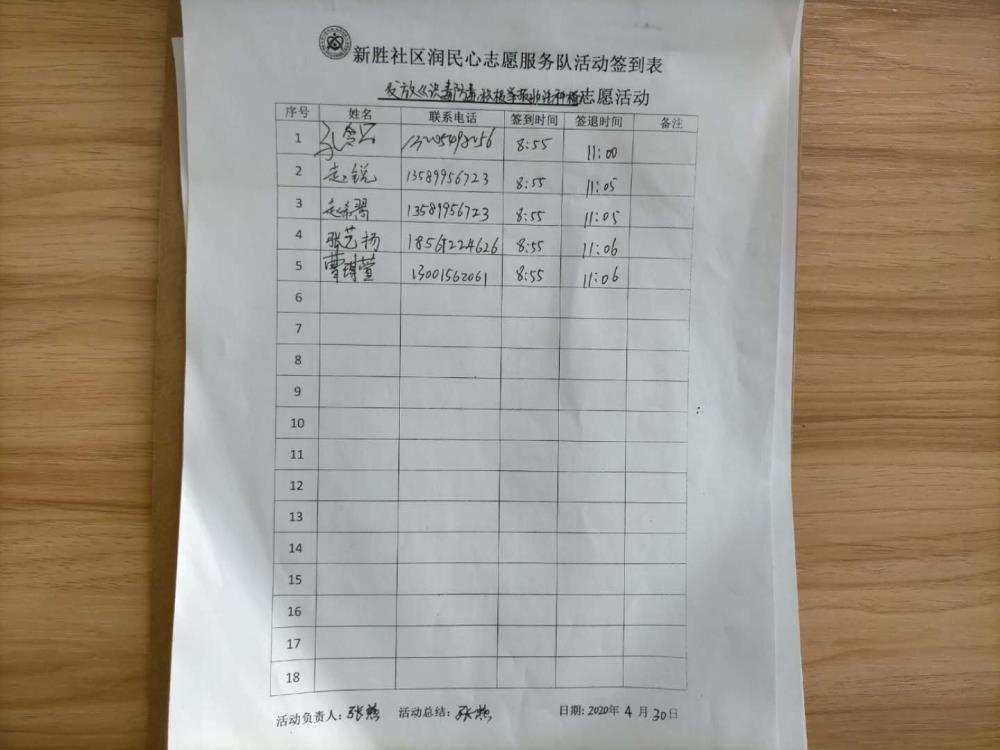 新胜社区润民心志愿服务队活动签到表
发放《识毒防毒,积极举报非法种植志愿活动
序号 姓名 联系电话 签到时间 签退时间 备注
1 8:55 11:00
2 赵锐 13589956723 8:55 11:05
3 13589956723 8:55 11:05
4 张艺扬 18561224626 8:55 11:06
5 曹博萱 13001562061 8:55 11:06
6
7
8
9
10
11
12
13
14
15
16
17
18
活动负责人:张燕 活动总结:张燕 日期:2020年4月30日